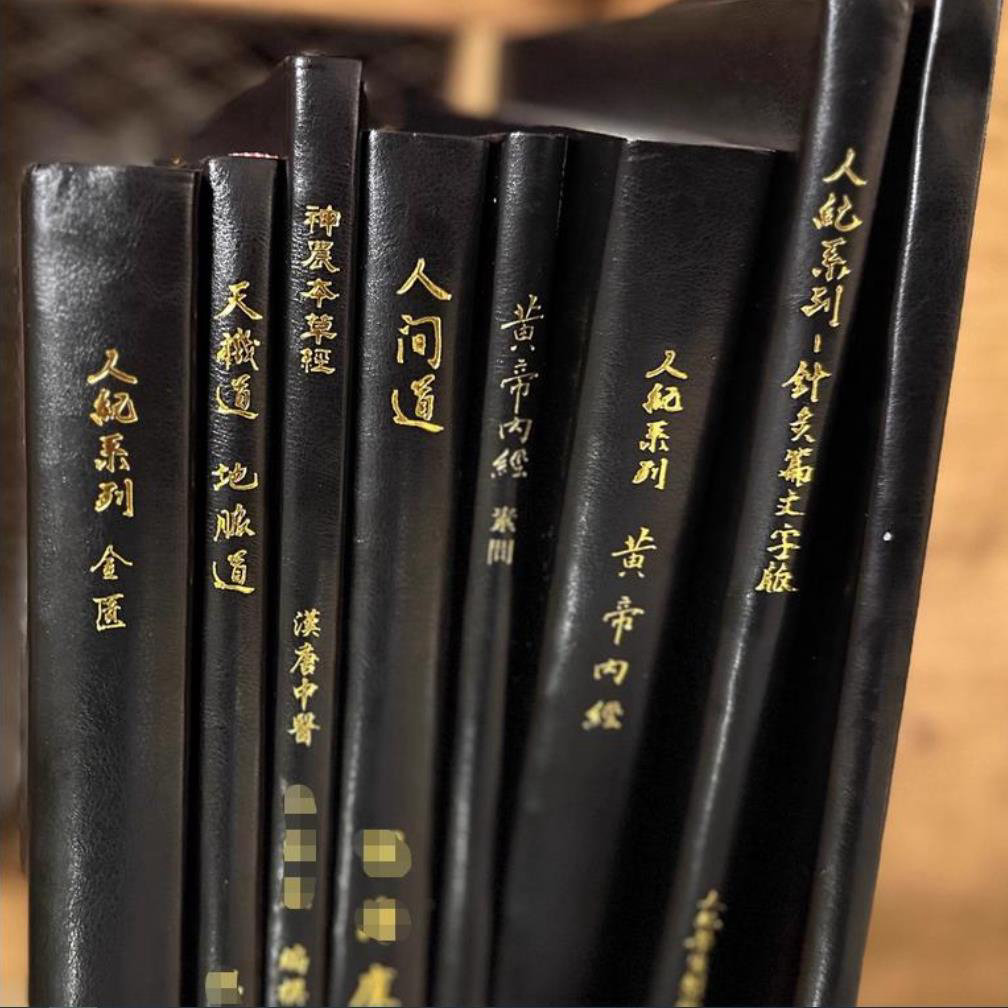 人紀系列 金匱
天機道 地脈道
神農本草經 漢唐中醫 編撰
人间道
黃帝內經 素問
人紀系列 黃帝內經
人紀系列-針灸篇文字版